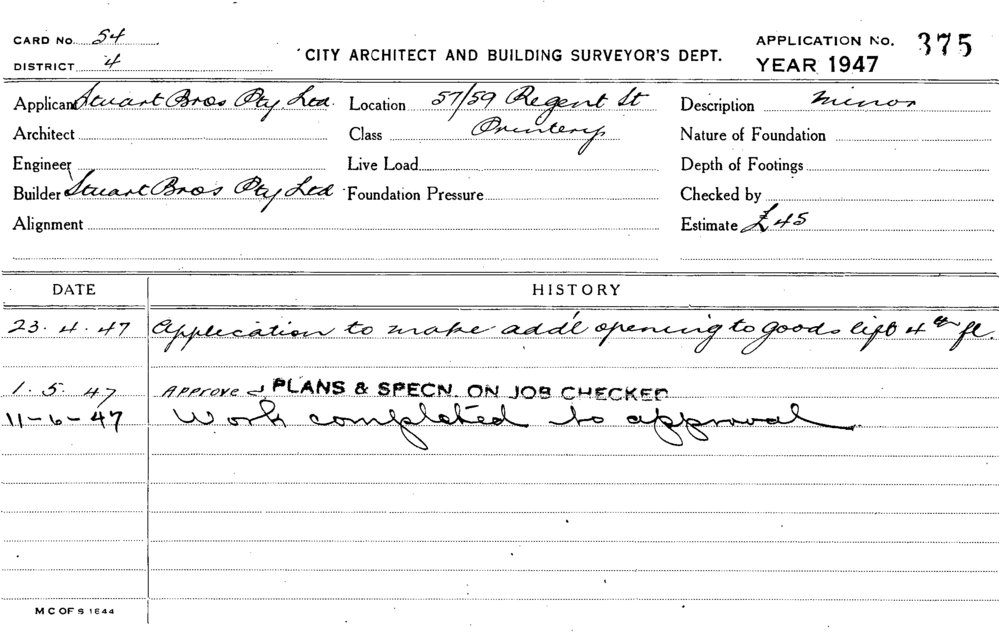 CARD No. 54 CITY ARCHITECT AND BUILDING SURVEYOR'S DEPT. APPLICATION No. 375
DISTRICT 4 YEAR 1947
Applicant Stuart Bros Pty. Ltd. Location 57/59 Regent St Description Minor
Architect Class Printery Nature of Foundation
Engineer Live Load Depth of Footings
Builder Stuart Bros Pty Ltd Foundation Pressure Checked by
Alignment Estimate £45
DATE HISTORY
23.4.47 Application to make add'l opening to goods lift 4th fl.
1.5.47 Approved PLANS & SPECN. ON JOB CHECKED
11-6-47 Work completed to approval
M C OF S 1644